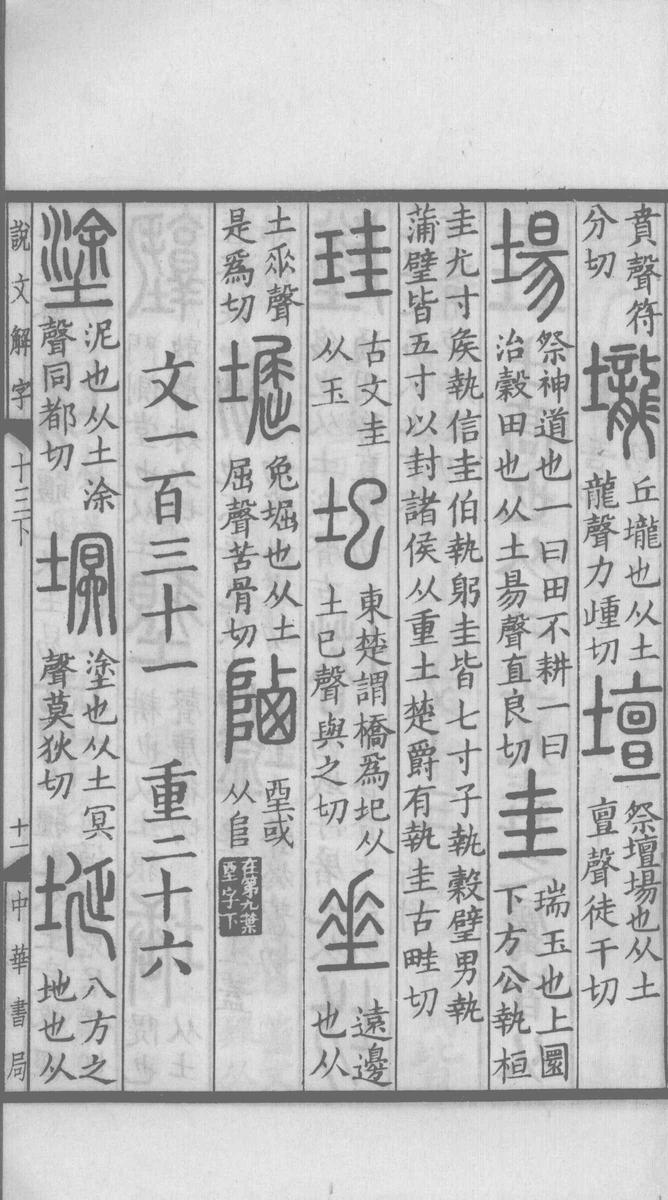 賁聲符
分切
壠
丘壠也从土
龍聲力歱切
壇
祭壇場也从土
亶聲徒干切
場
祭神道也一曰田不耕一曰
治穀田也从土昜聲直良切
圭
瑞玉也上圜
下方公執桓
圭尤寸矦執信圭伯執躬圭皆七寸子執穀璧男執
蒲璧皆五寸以封諸侯从重土楚爵有執圭古畦切
珪
古文圭
从玉
圯
東楚謂橋爲圯从
土巳聲與之切
垂
遠邊
也从
土𠂹聲
是爲切
堀
兔堀也从土
屈聲苦骨切
垔或
从𨸏
在第九葉
垔字下
文一百三十一 重二十六
塗
泥也从土涂
聲同都切
塓
塗也从土冥
聲莫狄切
埏
八方之
地也从
說文解字 十三下 十一 中華書局